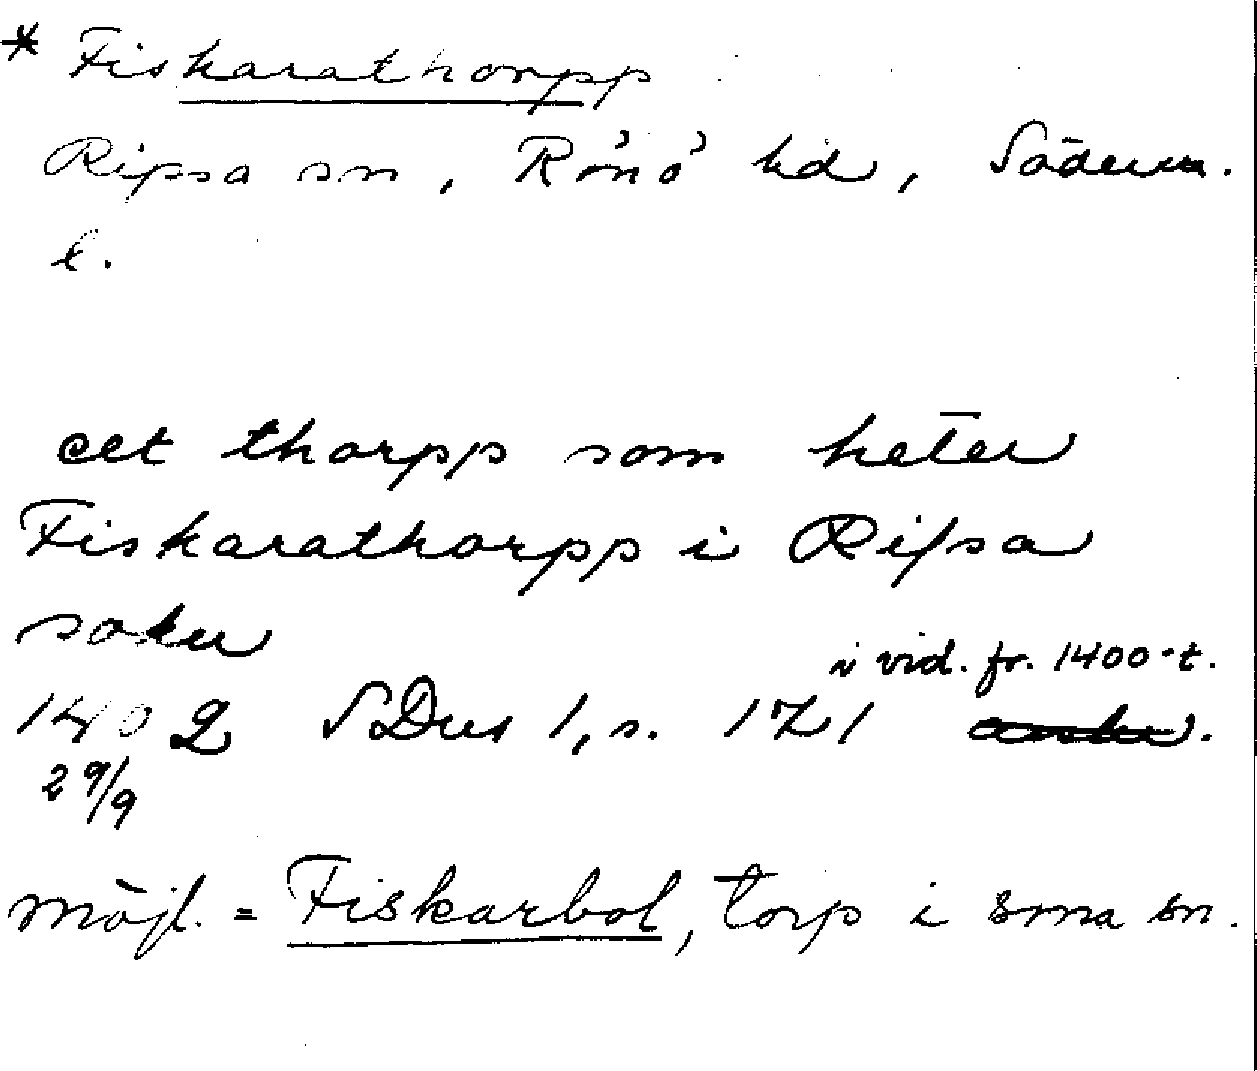 * Fiskarathorpp
Ripsa sn, Rönö hd, Söderm.
l.
eet thorpp som heter
Fiskarathorpp i Ripsa
sokn
i vid. fr. 1400-t.
1402 SDns 1, s. 171
29/9
möjl. = Fiskarbol, torp i sma sn.